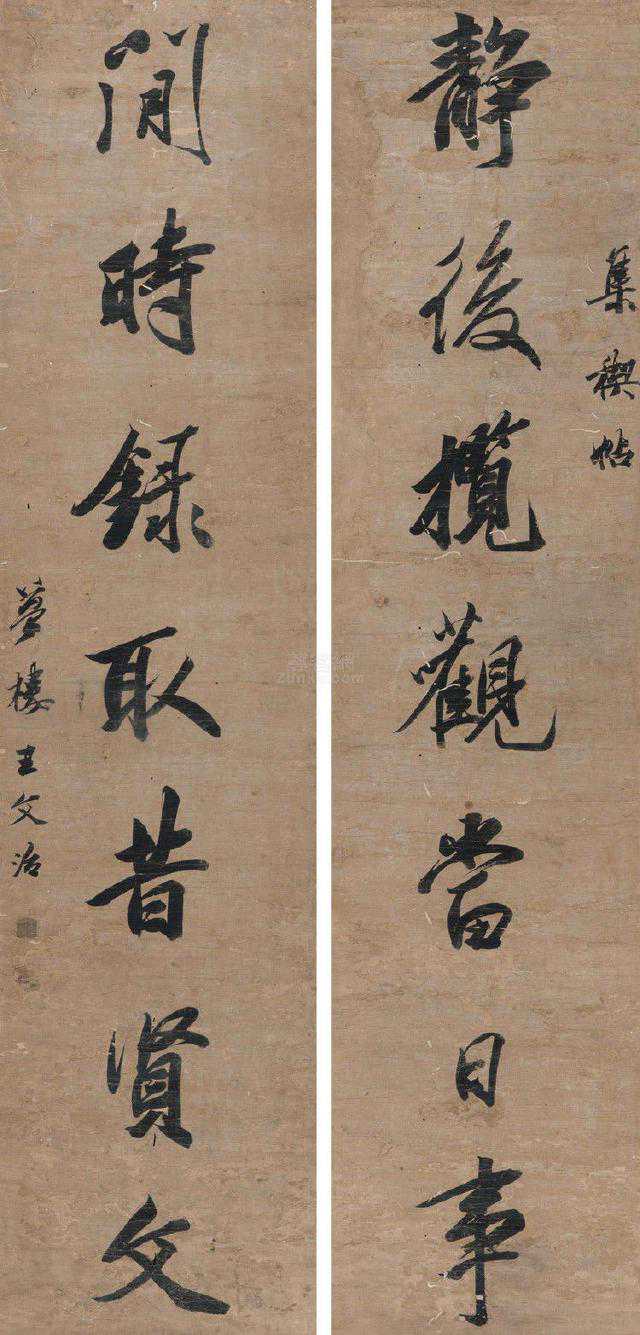 集稧帖
靜後攬觀當日事
閒時錄取昔賢文
夢樓王文治